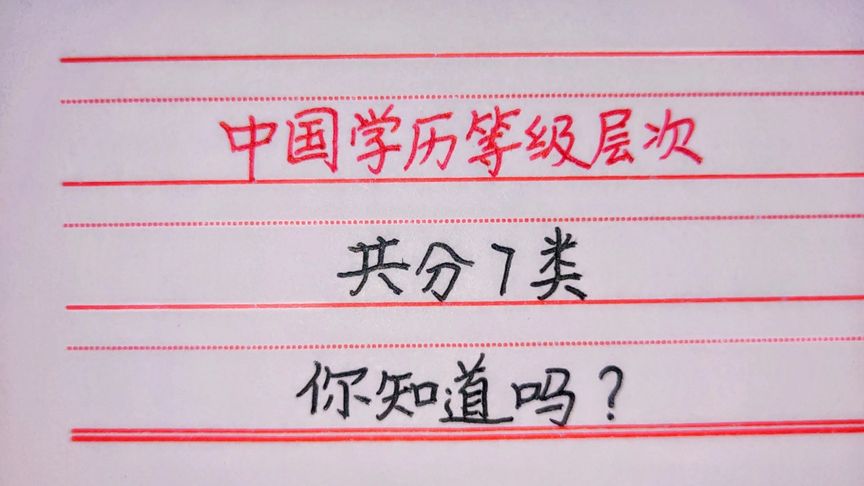 中国学历等级层次
共分7类
你知道吗?